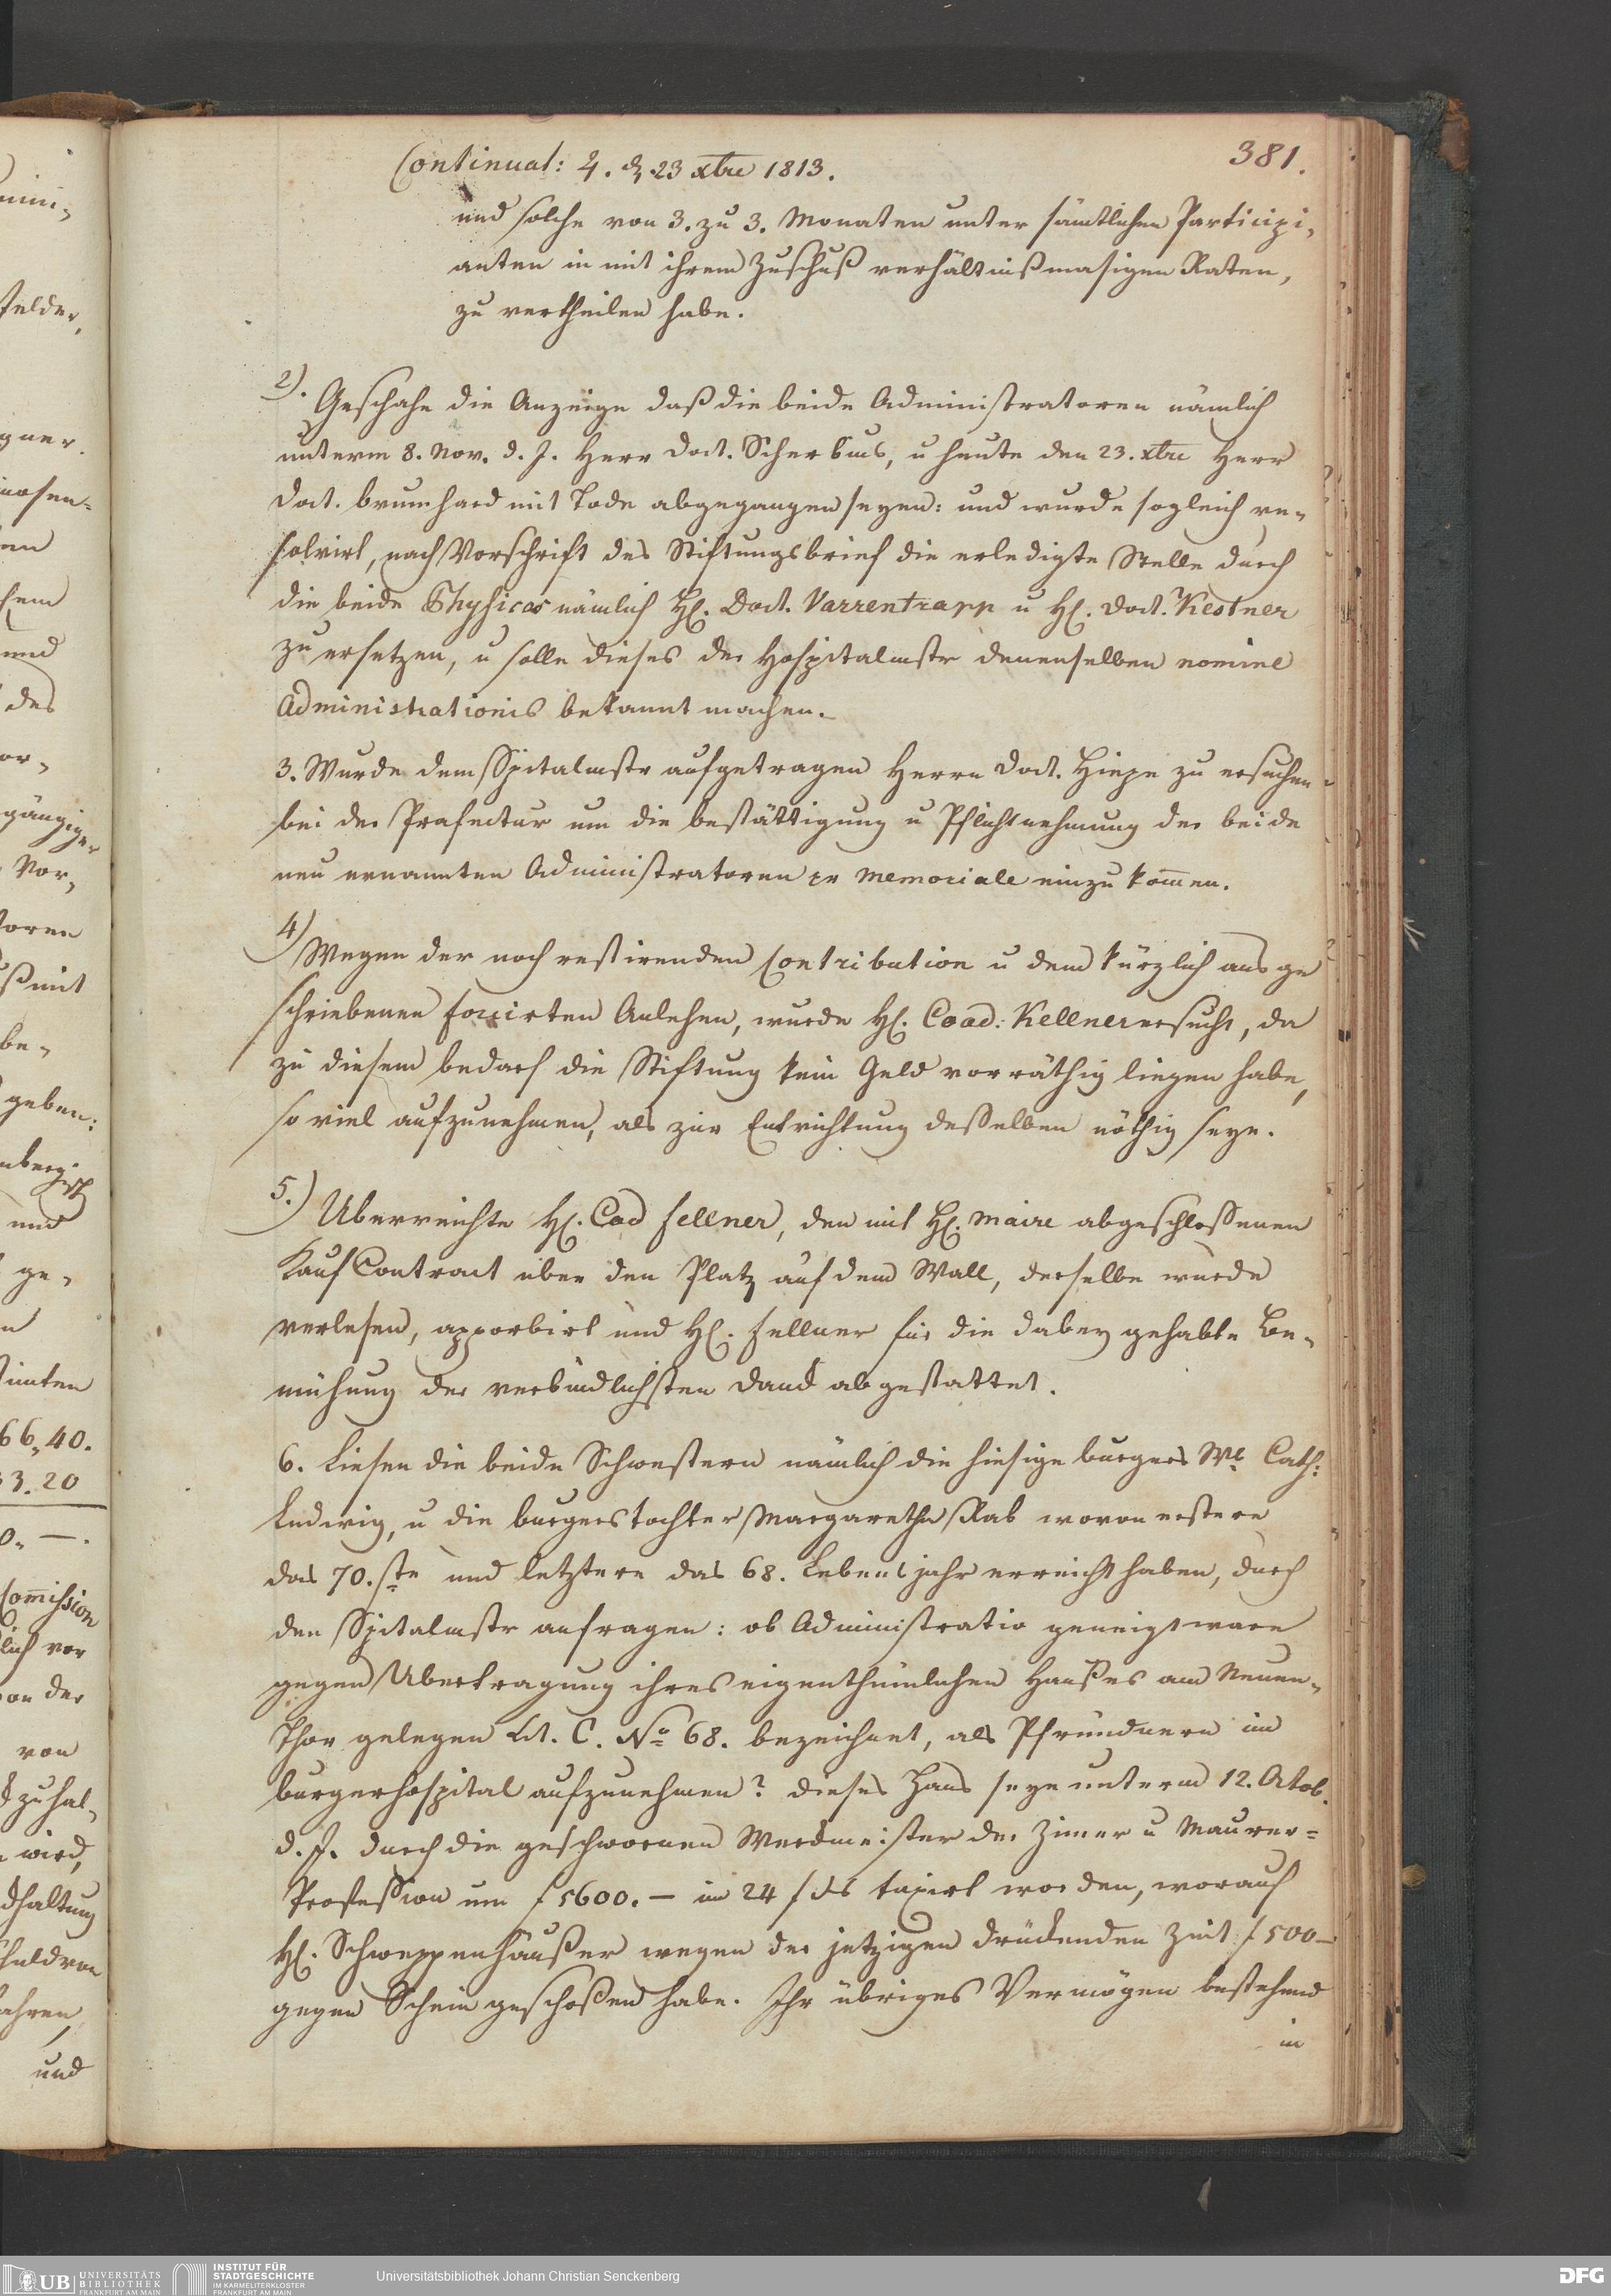 381.
Continuat: 4. d. 23 xbre 1813.
und solche von 3. zu 3. Monaten unter sämtlichen Participi,
anten in mit ihrem Zuschuß verhältnißmasigen Raten,
zu vertheilen habe.
2). Geschahe die Anzeige daß die beide Administratoren nämlich
unterm 8. Nov. d. J. Herr Doct. Scherbius, u heute den 23. xbre Herr
Doct. Brumhard mit Tode abgegangen seyen: und wurde sogleich re,
solvirt, nach Vorschrift des Stiftungsbrief die erledigte Stelle durch
die beide Physicos nämlich H. Doct. Varrentrapp u H. Doct. Kestner
zu ersetzen, u solle dieses der Hospitalmstr denenselben nomine
Administrationis bekannt machen.
3. Wurde dem Spitalmstr aufgetragen Herrn Doct. Hiepe zu ersuchen
bei der Prafectur um die bestättigung u Pflichtnehmung der beide
neu ernannten Administratoren pr memoriale einzukom̅en.
4) Wegen der noch restirenden Contribution u dem kürzlich ausge
schriebenen forcirten Anlehen, wurde H. Coad: Kellner ersucht, da
zu diesem bedarf die Stiftung kein Geld vorräthig liegen habe,
so viel aufzunehmen, als zur Entrichtung desselben nöthig seye.
5.) Uberreichte H. Coad fellner, den mit H. Maire abgeschlossenen
Kauf Contract über den Platz auf dem Wall, derselbe wurde
verlesen, approbirt und H. fellner für die dabey gehabte Be,
mühung der verbindlichsten Danck abgestattet.
6. Liesen die beide Schwestern nämlich die hiesige burgers Wb Cath:
Ludwig, u die burgerstochter Margaretha Rab wovon erstere
das 70.ste und letztere das 68. Lebensjahr erreicht haben, durch
den Spitalmstr anfragen: ob Administratio geneigt ware
gegen Ubertragung ihres eigenthümlichen Haußes am Neuen,
Thor gelegen Lit. C. No 68. bezeichnet, als Pfründnern im
burgerhospital aufzunehmen? dieses Haus seye unterm 12. Octob.
d. J. durch die geschwornen Werckmeister der Zimer u Maurer=
Profession um f 5600.— im 24 f fus taxirt worden, worauf
H. Schweppenhäußer wegen der jetzigen drückenden Zeit f 500—
gegen Schein geschoßen habe. Ihr übriges Vermögen bestehend
in
UB UNIVERSITÄTS
BIBLIOTHEK
FRANKFURT AM MAIN
INSTITUT FÜR
STADTGESCHICHTE
IM KARMELITERKLOSTER
FRANKFURT AM MAIN
Universitätsbibliothek Johann Christian Senckenberg
DFG